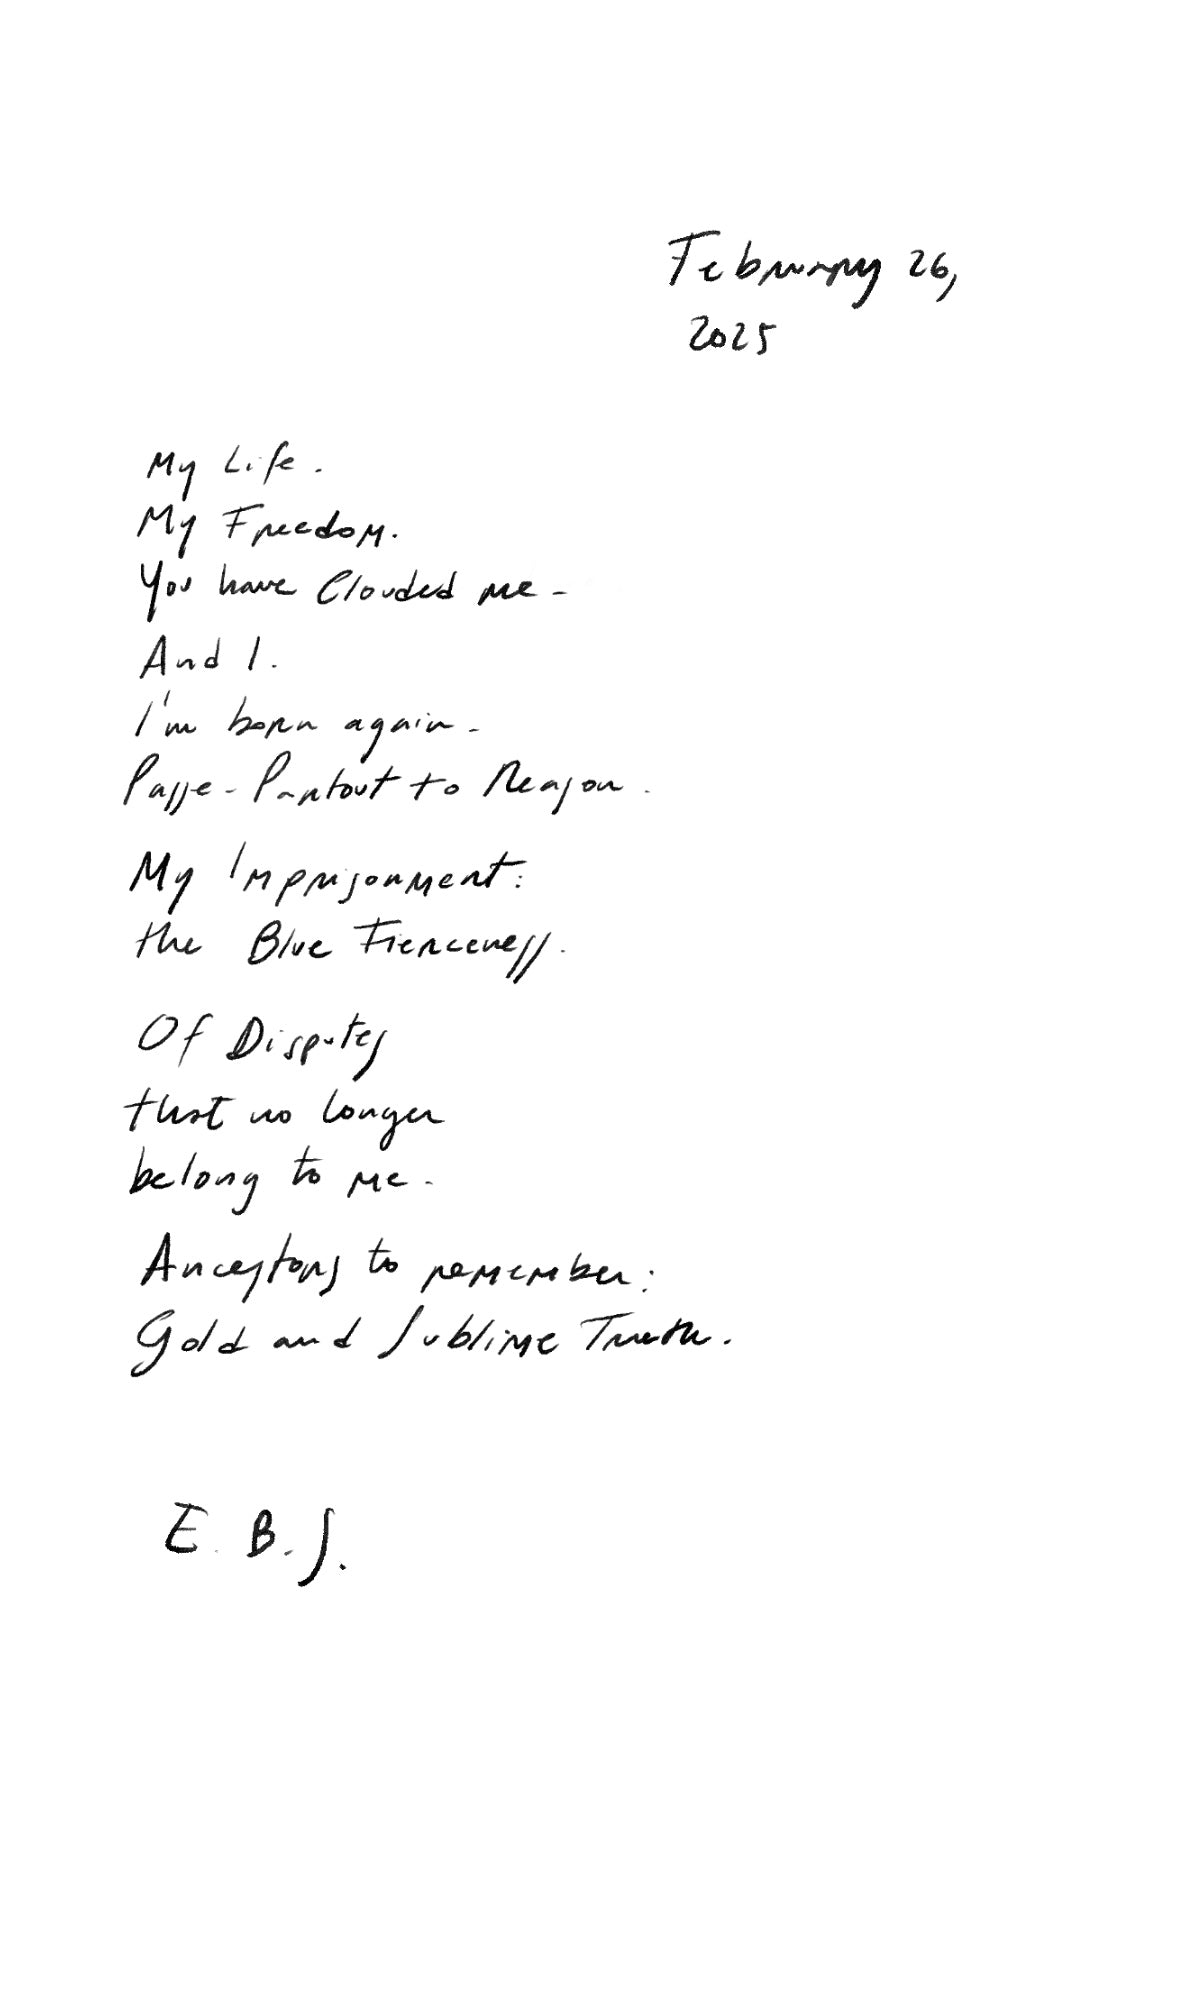 February 26,
2025
My Life.
My Freedom.
You have Clouded me -
And I.
I'm born again -
Passe-Partout to Reason.
My Imprisonment:
the Blue Fierceness.
Of Disputes
that no longer
belong to me.
Ancestors to remember:
Gold and Sublime Truth.
E. B. J.